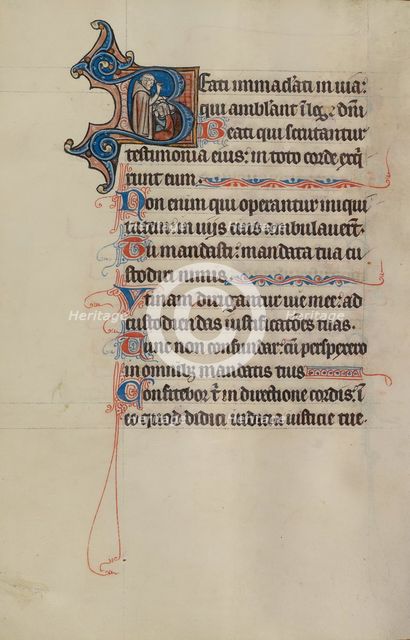 Beati immaclati in uia:
qui amblant i lege dñi
Beati qui scrutantur
testimonia eius: in toto corde exq̃
runt eum.
Non enim qui operantur iniqui
tatem: in uijs eius ambulauert.
Tu mandasti: mandata tua cu
stodiri nimis.
Vtinam dirigantur uie mee: ad
custodiendas iustificatões tuas.
Tunc non confundar: cũ perspexero
in omnib; mandatis tuis
Confitebor t̃ in directione cordis: ĩ
eo quod didici iudicia iusticie tue.
Heritage Images
Heritage Images